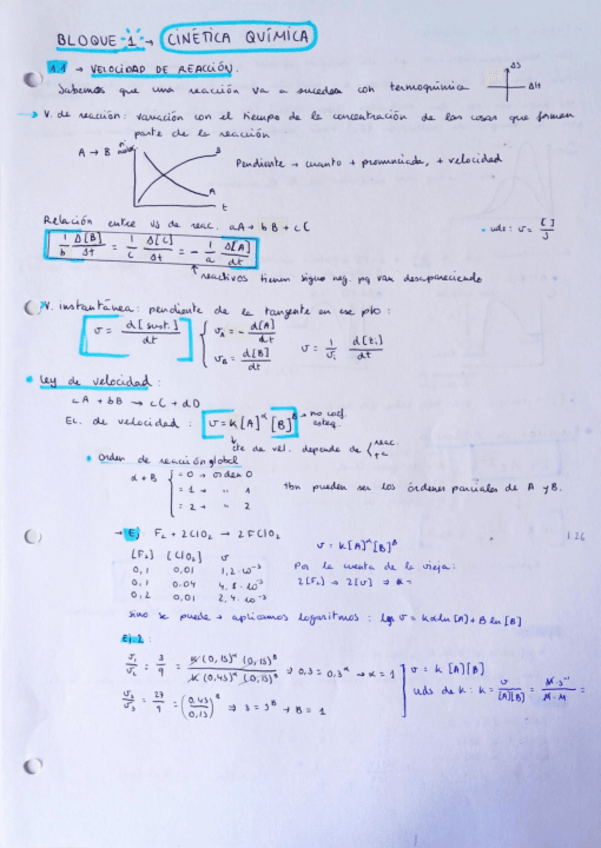 BLOQUE 1 → CINÉTICA QUÍMICA
1.1 → VELOCIDAD DE REACCIÓN.
Sabemos que una reacción va a suceder con termoquímica
ΔS
ΔH
→ V. de reacción: variación con el tiempo de la concentración de las cosas que forman
parte de la reacción
A → B
B
A
t
Pendiente → cuanto + pronunciada, + velocidad
Relación entre vs de reac. aA → bB + cC
• uds: v = [ ]/s
1/b Δ[B]/Δt = 1/c Δ[C]/Δt = - 1/a Δ[A]/dt
↑ reactivos tienen signo neg. pq van desapareciendo
V. instantánea: pendiente de la tangente en ese pto:
v = d[sust.]/dt { vA = - d[A]/dt
vB = d[B]/dt
v = 1/νi d[ti]/dt
• Ley de velocidad:
aA + bB → cC + dD
Ec. de velocidad: v = k[A]^α [B]^β → no coef. esteq.
↓ cte de vel. depende de { reac.
tª
• Orden de reacción global
α + β { = 0 → orden 0
= 1 → " 1
= 2 → " 2
tbn pueden ser los órdenes parciales de A y B.
→ Ej: F₂ + 2ClO₂ → 2FClO₂
[F₂] [ClO₂] v
0,1 0,01 1,2·10⁻³
0,1 0.04 4,8·10⁻³
0,2 0,01 2,4·10⁻³
v = k[A]^α[B]^β
Por la cuenta de la vieja:
2[F₂] → 2[v] → α =
1.26
sino se puede → aplicamos logaritmos: log v = kαln[A] + B ln[B]
Ej.2:
v₁/v₂ = 3/9 = k(0,15)^α (0,15)^β / k(0,45)^α (0,15)^β ⇒ 0,3 = 0,3^α → α = 1
v₂/v₃ = 27/9 = (0.45/0,15)^β ⇒ 3 = 3^β → β = 1
v = k [A][B]
uds de k: k = v/[A][B] = M·s⁻¹/M·M =